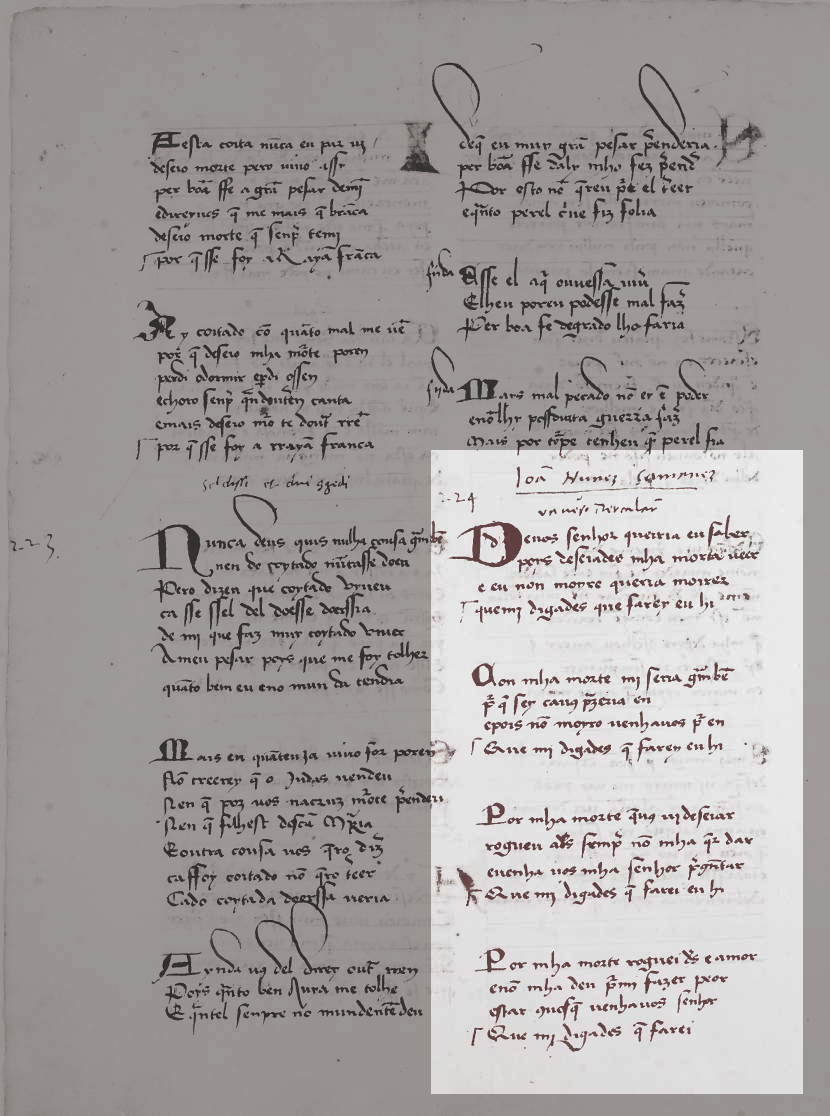 A esta coita nūca eu par ui
deseio morte pero uiuo assy
per boā ffe a grā pesar demī
edireyues q̄ me mais q̄ brāca
deseio morte q̄ senpr̄ temi
por q̄ sse foy a Rayā frāca
Ay coitado cō quāto mal me uē
por̄ q̄ deseio mha mōrte poren
perdi odormir eperdi ossen
echoro senpr̄ q̄ndoutrē canta
emais deseio
por q̄ sse foy a rrayā franca
223
Nunca deus quis nulha cousa grām bē
nen do coytado nūcasse doeu
Pero dizen que coytado uyueu
ca sse ssel del doesse doerssia
de mi que faz muy coytado uiuer
A meu pesar poys que me foy tolher
quāto bem eu eno mundo tendia
Mais en quāten ia uiuo for poren
Nō creerey q̄ o Iudas uendeu
Nen q̄ por uos nacruz mōrte p̄ndeu
Nen q̄ filhest
Eoutra cousa uos q̄ro diz̄
ca ffoy coitado nō q̄ro teer
Cado coytado doerssa ueria
Aynda uꝯ del direy outr̄ rren
Poys q̄nto ben Auya me tolhe
E q̄ntel senpre no mundentēdeu
deq̄ eu muy grā pesar p̄nderia
per boā ffe dalr mho fez p̄nd̄
Por esto nō q̄reu p̄r el teer
eq̄nto perel
fijnda
Esse el aq̄ ouuessa uiū
Elheu poren podesse mal faz̄
Per boa fe degrado lho faria
fijnda
Mays mal pecado nō ey ē poder
enō lhy possoutra guerra faz̄
Mais por tōrpe tenheu q̄ perel fia
Ioā Nunez Camanez
224
Deuos senhor querria eu saber
poys deseiades mha morte ueer
e eu non moyro querria moirer
quemi digades que farey eu hi
Con mha morte mi seria grām bē
pr̄ q̄ sey
epois nō moyro uenhauos pr̄ en
Que mi digades q̄ farey eu hi
Por mha morte q̄uꝯ ui deseiar
rogueu ads̄ sempr̄ nō mha q̄r dar
euenha uos mha senhor p̄gūtar
Que mi digades q̄ farei eu hi
Por mha morte roguei ds̄ e amor
enō mha deu pr̄mi fazer peor
estar q̄ uenhauos senhor
Que mi digades q̄ farei